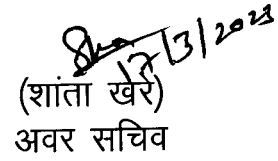 17/3/2023
(शांता खेरे)
अवर सचिव